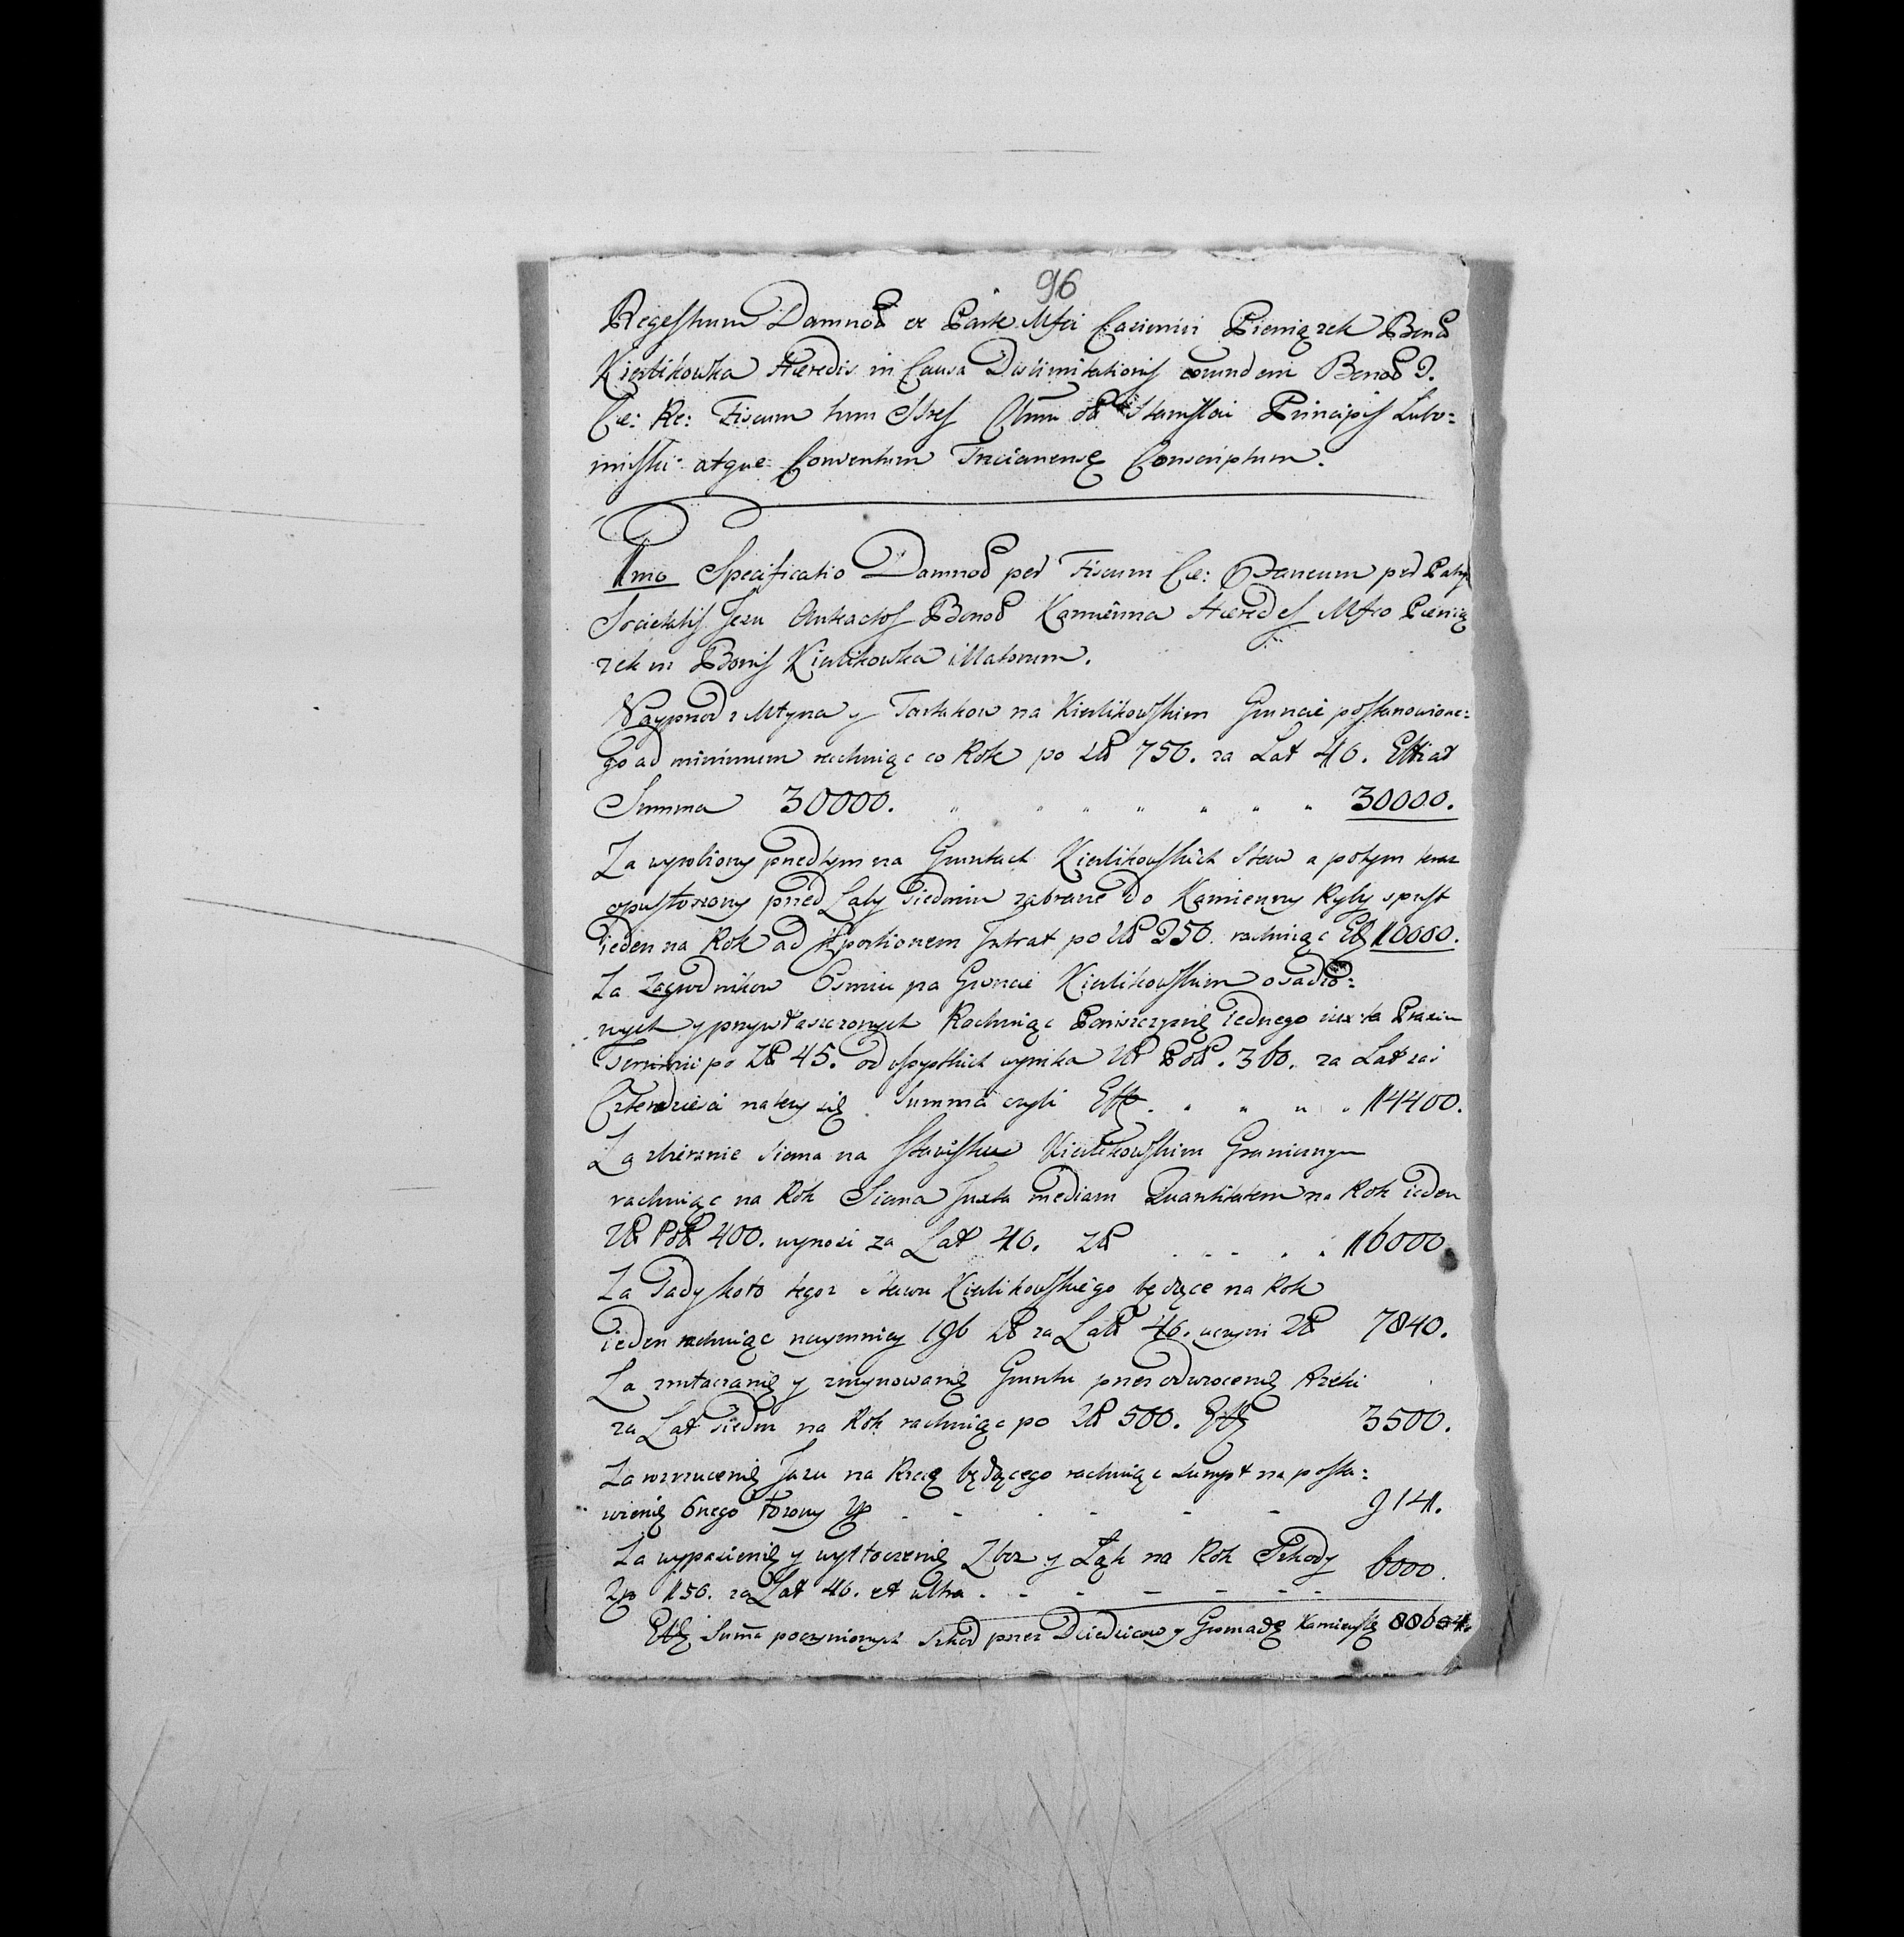 96
Regestrum Damnor ex Parte Mfci Casimiri Pieniązek Bonor
Kierlikowka Hæredis in Causa Dislimitationis eorundem Bonor I.
Cæ: Re: Fiscum tum Isres Olim Stanislai Principis Lubo=
mirski atque Conventum Trcianensę Conscriptum.
1mo Specificatio Damnor per Fiscum Cæ: per Patrs
Societatis Jesu Bonor Kamienna Hæredes Mfco Pienią
zek in Bonis Kierlikowka illatorum.
Nayprzod z Młyna y Tartakow na Kierlikowskim Gruncie postanowione=
go ad minimum rachuiąc co Rok po zł 750. za Lat 40. Efficit
Summa 30000. " " " " " " " 30000.
Za wyrobiony przedtym na Gruntach Kierlikowskich Staw a potym teraz
opustoszony przed Laty Siedmiu zabrane do Kamienny Ryby spust
ieden na Rok ad proportionem Intrat po zł 250. rachuiąc Eff 10000.
Za Zagrodnikow Osmiu na Gruncie Kierlikowskim osadzo=
nych y przywłaszczonych Rachuiąc Panszczyznę iednego iuxta Praxim
po zł 45. od wszystkich wynika zł Pol. 360. za Lat zaś
Czterdzieści należy się Summa czyli Eff. " " " " 14400.
Za zbieranie siana na Stawisku Kierlikowskim Granicznym
rachuiąc na Rok Siana Juxta mediam Quantitatem na Rok ieden
zł Pol 400. wynosi za Lat 40. zł . . . . . 16000
Za Sady koło tegoz Stawu Kierlikowskiego będące na Rok
ieden rachuiąc naymniey 196 zł za Lat 40. uczyni zł 7840.
Za y zruynowanię Gruntu przez odwrocenię Rzeki
za Lat siedm na Rok rachuiąc po zł 500. Eff 3500.
Za wzrucenię Jazu na Rzcę będącego rachuiąc sumpt na posta=
wienię onego łożony zł - - - - - - 914.
Za wypasienię y wytłoczenię Zboz y Łąk na Rok Szkody 6000.
Zp 150. za Lat 40. et ultra . - - - - - -
Eff Suma poczynionych szkod przez Dziedzicow y Gromadę Kamienską 88654